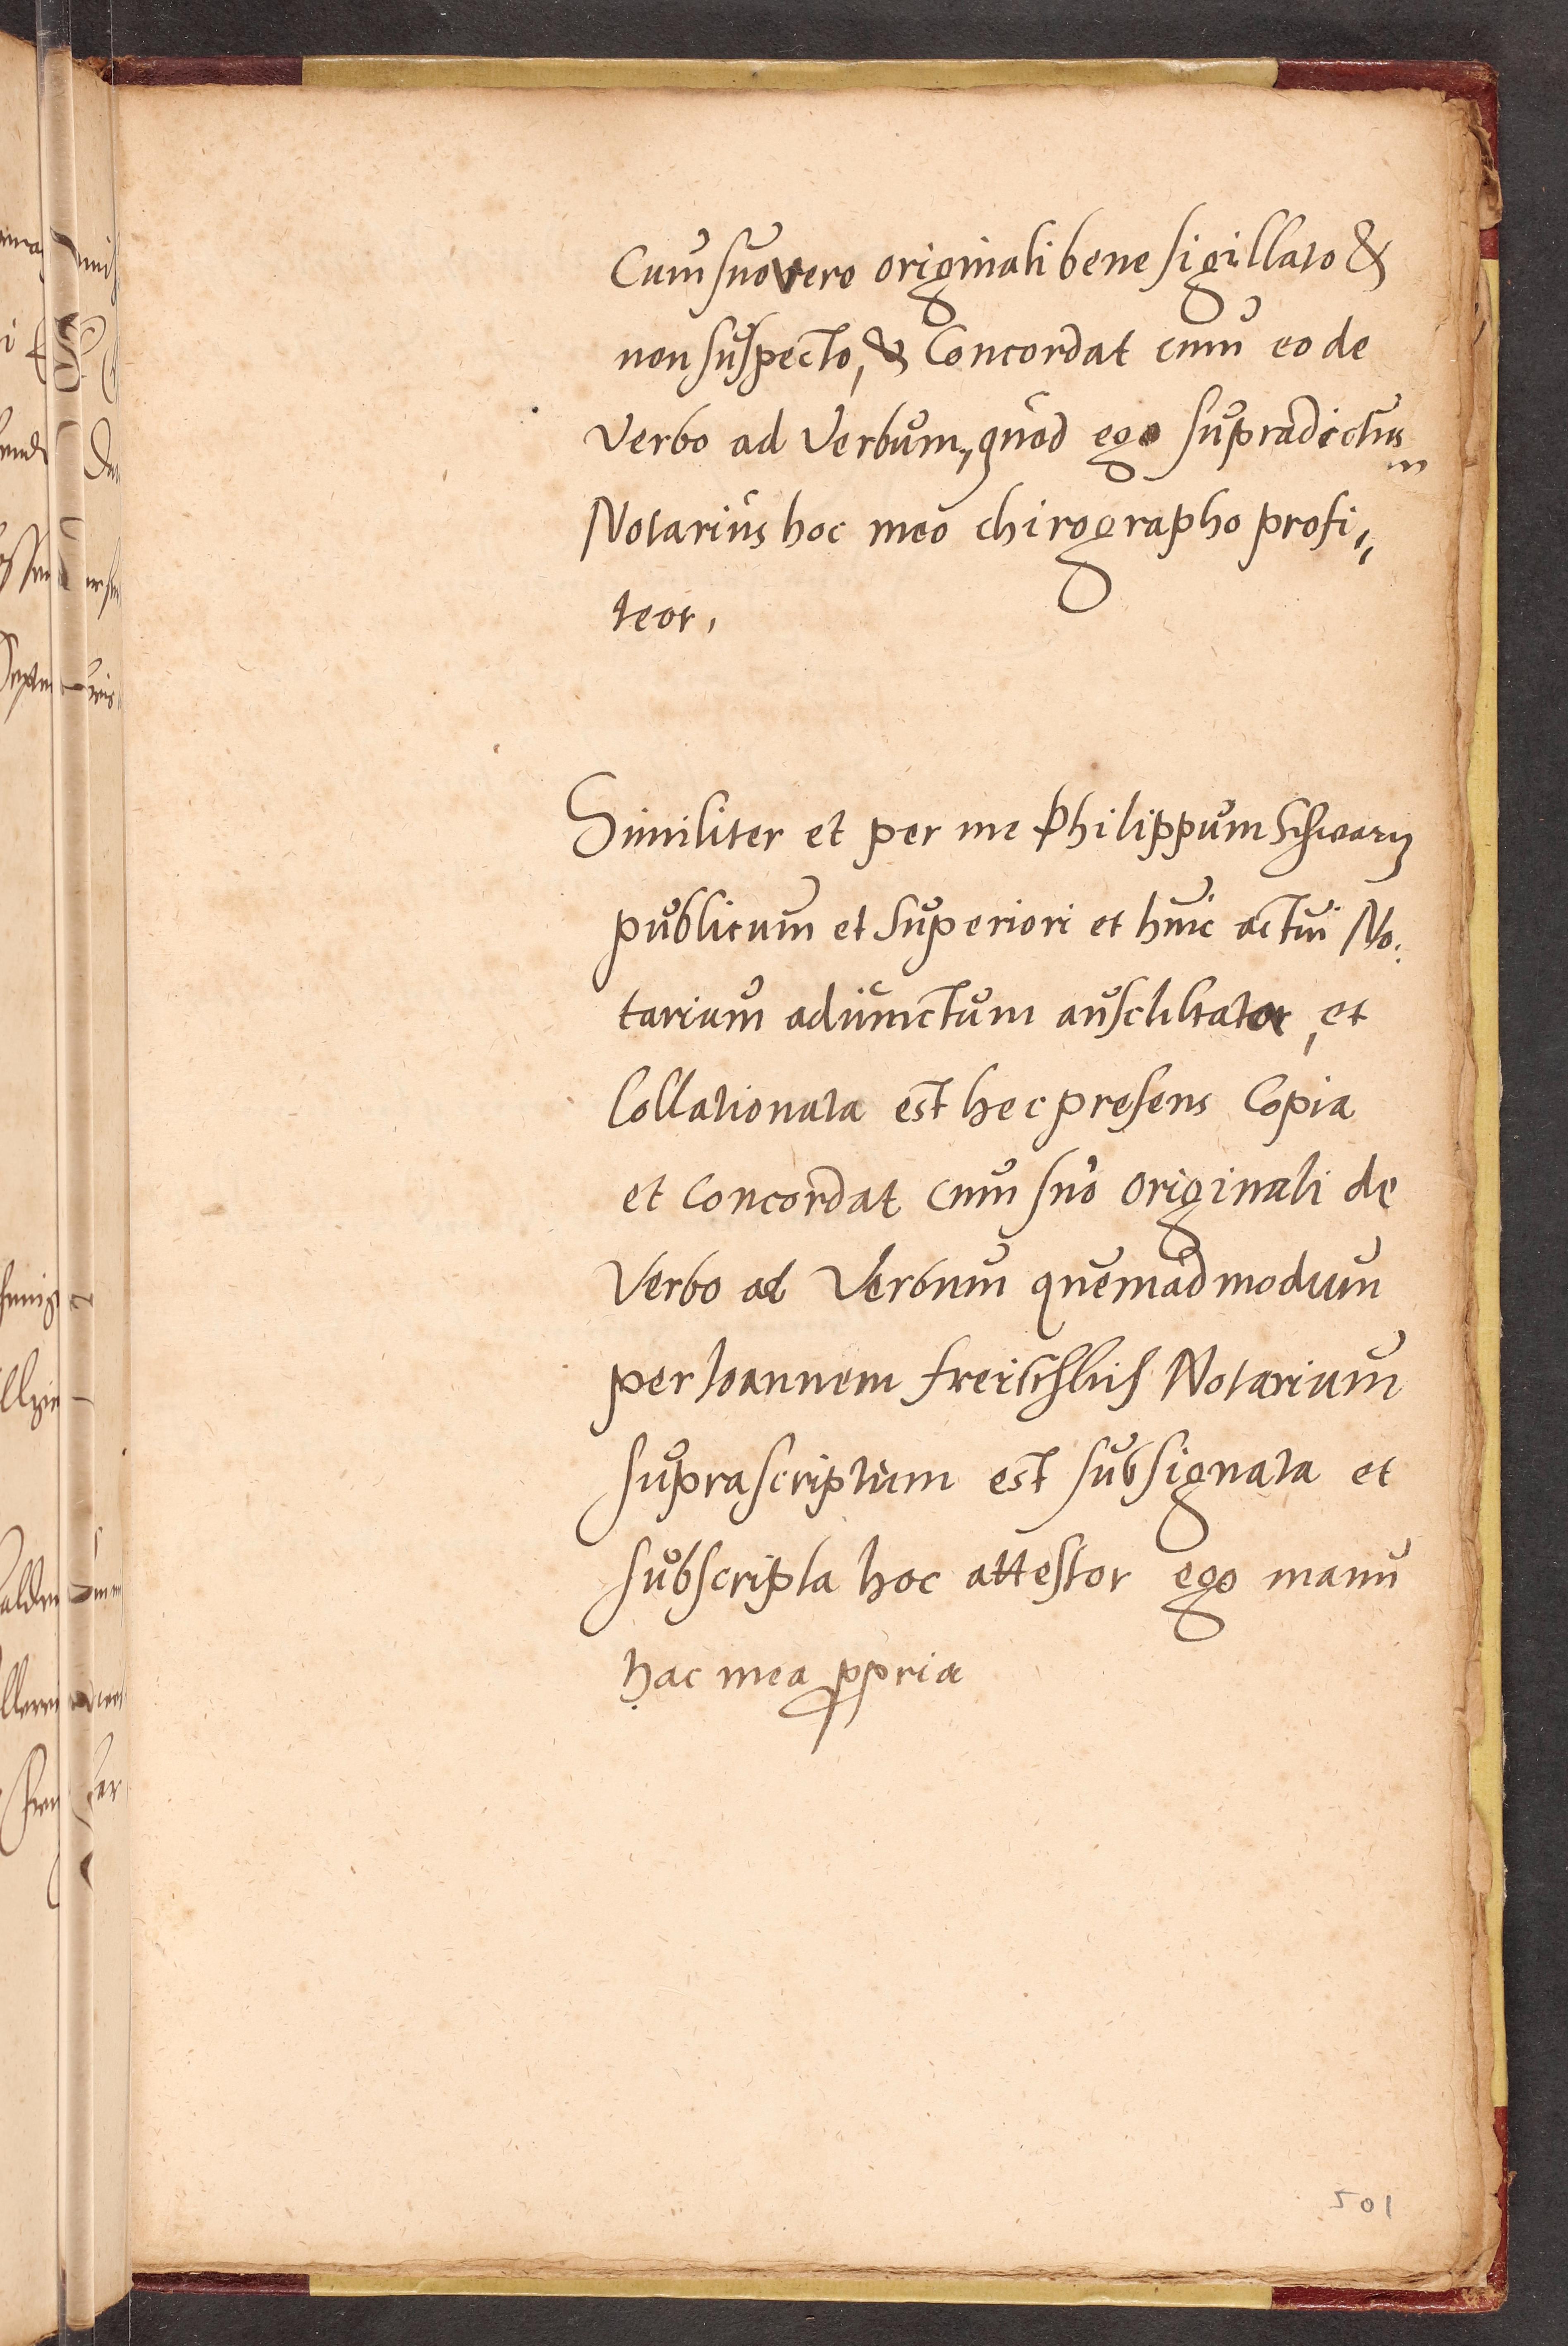 Cum suo vero originali bene sigillato &
non suspecto, & Concordat cum eo de
Verbo ad Verbum, quod ego supradictus
Notarius hoc meo chirographo profi„
teor,
Similiter et per me Philippum Schwarz
publicum et superiori et huic actui No„
tarium adiunctum auscultator, et
Collationata est hec presens Copia
et Concordat cum suo originali de
Verbo ad Verbum quemadmodum
per Ioannem Notarium
suprascriptum est subsignata et
subscripta hoc attestor ego manu
hac mea ppria
501